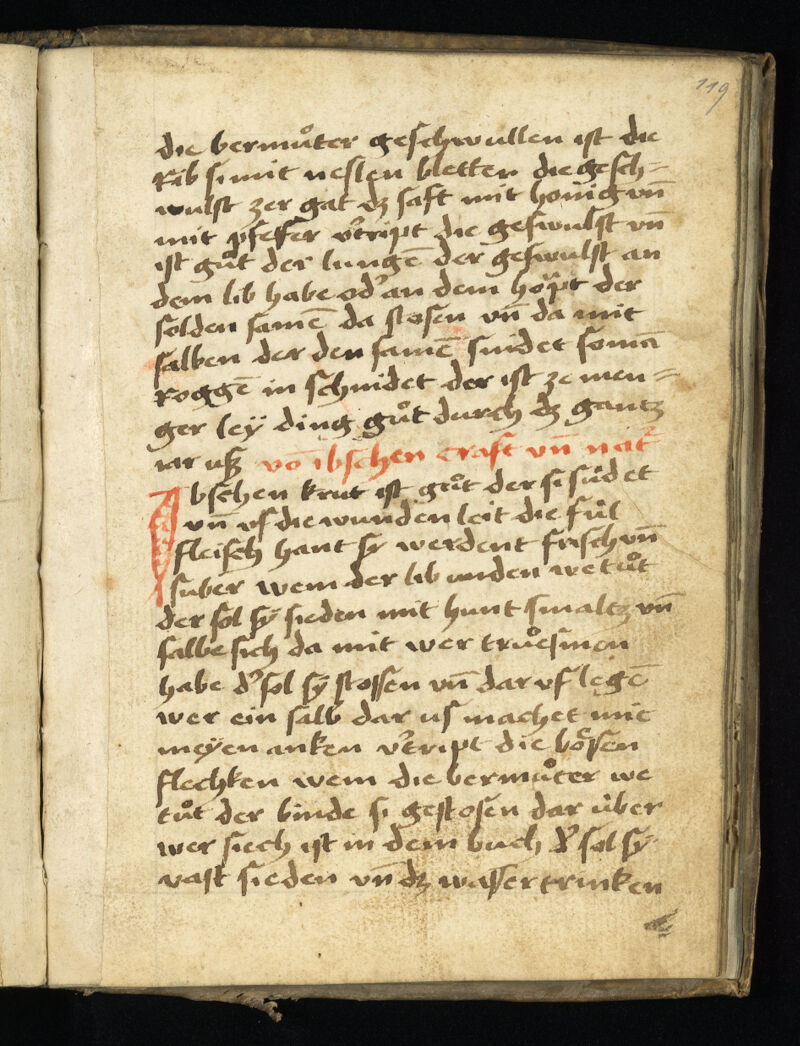 119
die bermůter geschwullen ist die
Rib si mit neslen bletter die gesch=
wulst zer gat dz saft mit honig vn̄
mit pfeffer v’tript die geswulst vn̄
ist gůt der lungē der geswulst an
dem lib habe od’ an dem hopt der
solden samē da stosen vn̄ da mit
salben der den samē snidet so mā
Roggē in schnidet der ist ze men=
ger leÿ ding gůt durch dz gantz
iar uß vō ibschen craft vn̄ nat’
Ibschen krut ist gůt der si südet
vn̄ vf die wunden leit die fůl
fleisch hant sy werdent frisch vn̄
suber wem der lib unden we tůt
der sol sÿ sieden mit hunt smaltz vn̄
salbe sich da mit wer truosmen
habe d’ sol sÿ stossen vn̄ dar vf legē
wer ein salb dar us machet mit
meyen anken v’tript die bösen
flechken wem die bermůter we
tůt der binde si gestosen dar über
wer siech ist in dem buch d’ sol sÿ
vast sieden vn̄ dz wasser trinken